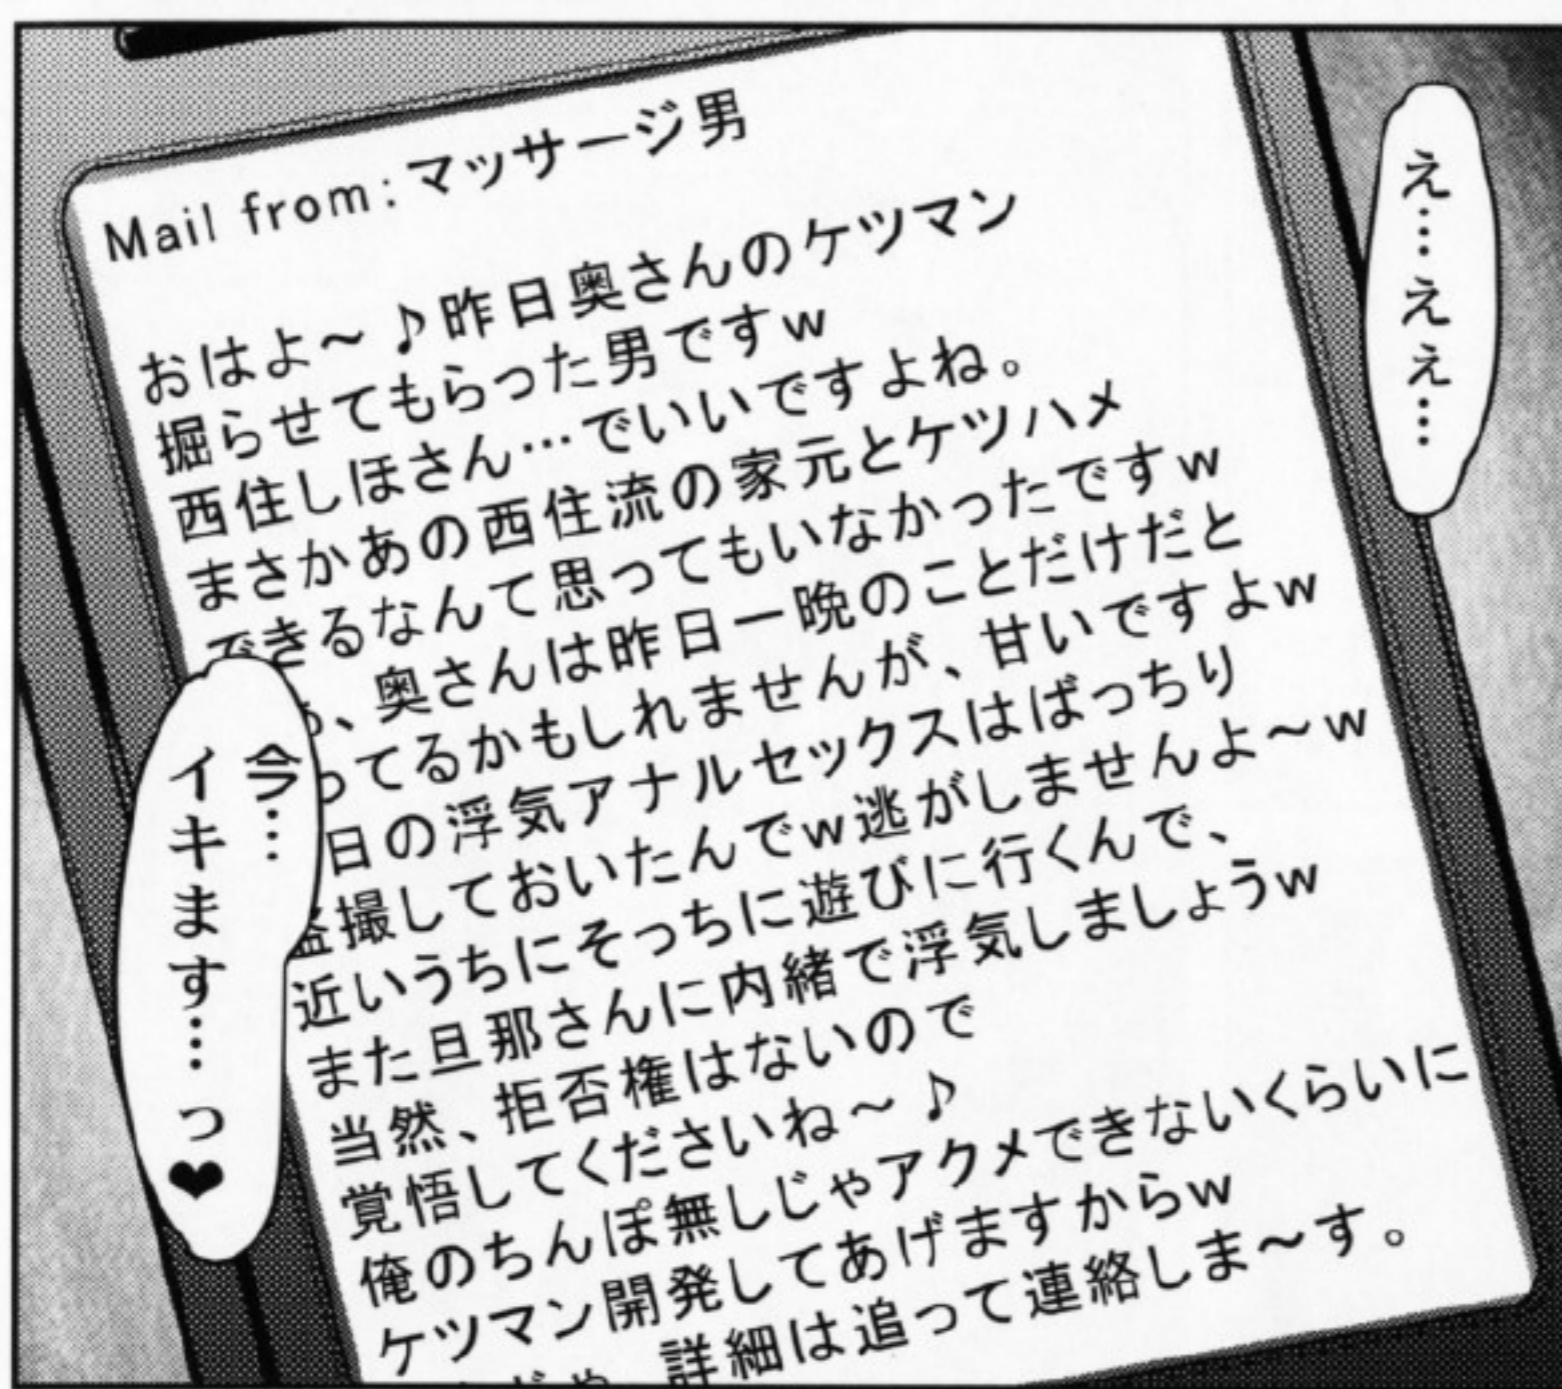 え…ええ…
Mail from:マッサージ男
おはよ～♪昨日奥さんのケツマン
掘らせてもらった男ですw
西住しほさん…でいいですよね。
まさかあの西住流の家元とケツハメ
できるなんて思ってもいなかったですw
、奥さんは昨日一晩のことだけだと
ってるかもしれませんが、甘いですよw
日の浮気アナルセックスはばっちり
盗撮しておいたんでw逃がしませんよ～w
近いうちにそっちに遊びに行くんで、
また旦那さんに内緒で浮気しましょうw
当然、拒否権はないので
覚悟してくださいね～♪
俺のちんぽ無しじゃアクメできないくらいに
ケツマン開発してあげますからw
じゃ、詳細は追って連絡しま～す。
今…
イキます…っ♥